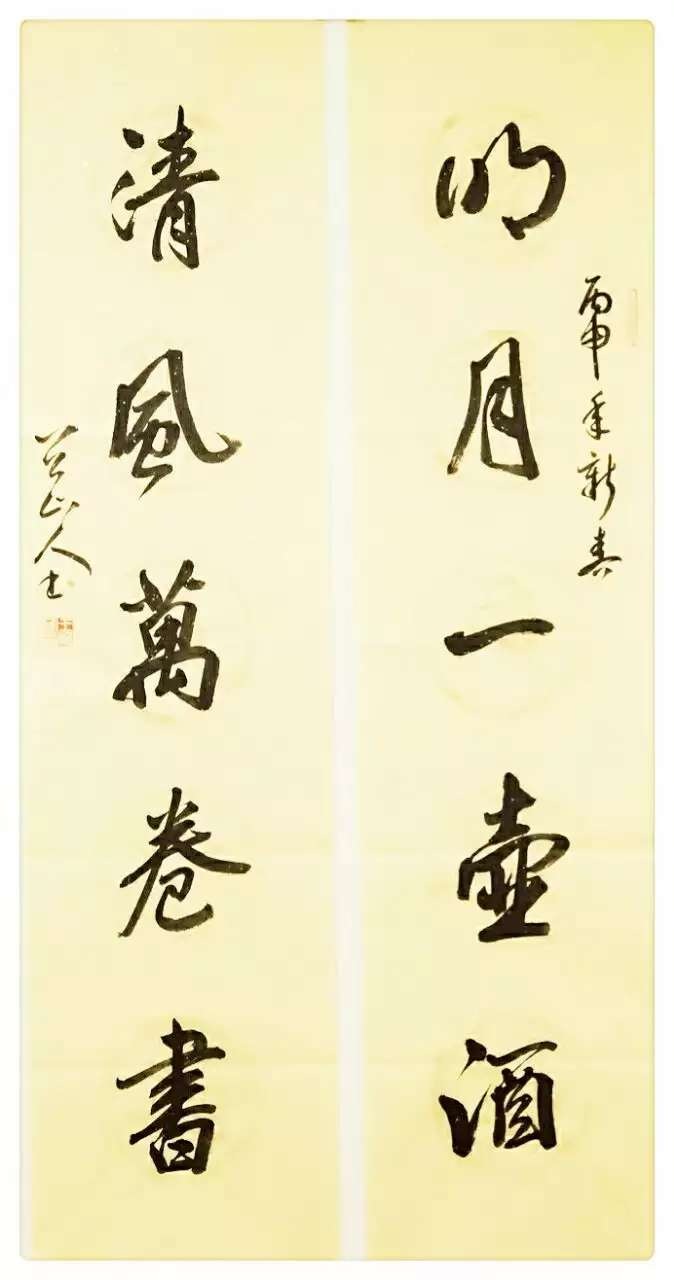 丙申年新春
明月一壺酒
清風萬卷書
八公山人士